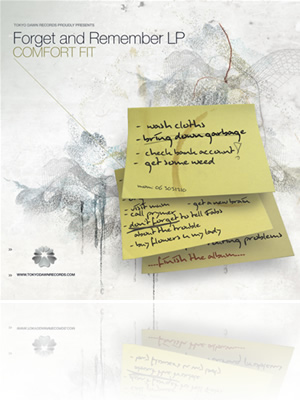 TOKYO DAWN RECORDS PROUDLY PRESENTS
Forget and Remember LP
COMFORT FIT
- wash cloths
- bring down garbage
- check bank account!
- get some weed
- visit mum - get a new brain
- call prymer
- don't forget to tell Jobs
about the trouble
- buy flowers 4 my lady
problems
....finish the album.....
WWW.TOKYODAWNRECORDS.COM